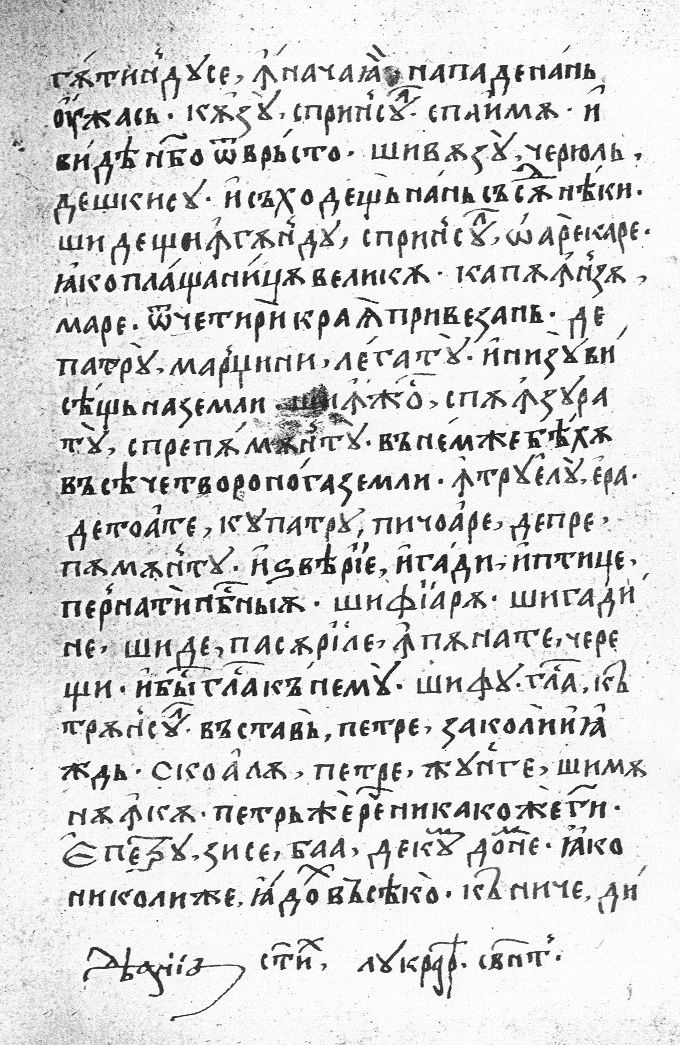 гѫтинду се, ꙟ начаꙗ̀ нападе нань
оужась · кѫзꙋ̀, сприн̾сꙋл, спаймѫ · и҆
видѣ н҃бо ѿврьсто · ши вѫзꙋ̀, черюль,
дешкису · и҆ съходещь нань съсѫⷣ нѣки ·
ши дещиꙟгѫн̾дꙋ, сприн̾сꙋл, ѡ҆аре каре ·
ꙗ҆ко плащаница велика · ка пѫꙟн̾зѫ,
маре · ѿ четири краѧ̀ привезань · де
патрꙋ̀, марџини, легатꙋ̀ · и҆ низꙋ ви
сѣщь на земли · ши ꙟжоⷭ, спѫꙟзура
тꙋ̀, спре пѫмѫн̾ту · въ немже бѣхѫ
въсѣ четворонога земли · ꙟтру елꙋ̀, ера ·
де тоате, ку патру, пичоаре, де пре,
пѫмѫн̾ту · и҆ ѕвѣрїе, и҆ гади, и҆ птице,
пер̾нати нбⷭ҇ныѫ · ши фїарѫ · ши гади
не, ши де, пасѫрїле, ꙟпѫнате, чере
щи · и҆ бы гл҃а къ немꙋ̀ · ши фу · гл҃а, кѫ
трѫн̾сꙋл · въставь, петре, заколи и ꙗ
ждь · скоалѫ, петре, жун̾ге, ши мѫ
нѫн̾кѫ · петрь же реⷱ никакоже ги҃ ·
Є пеⷮрꙋ, зисе, баа, де кꙋⷨ доⷨне · ꙗ҆ко
николиже, ꙗ҆доⷯ въсѣко · кѫ ниче, ди
Дѣꙗнїа стиⷯ, лукр